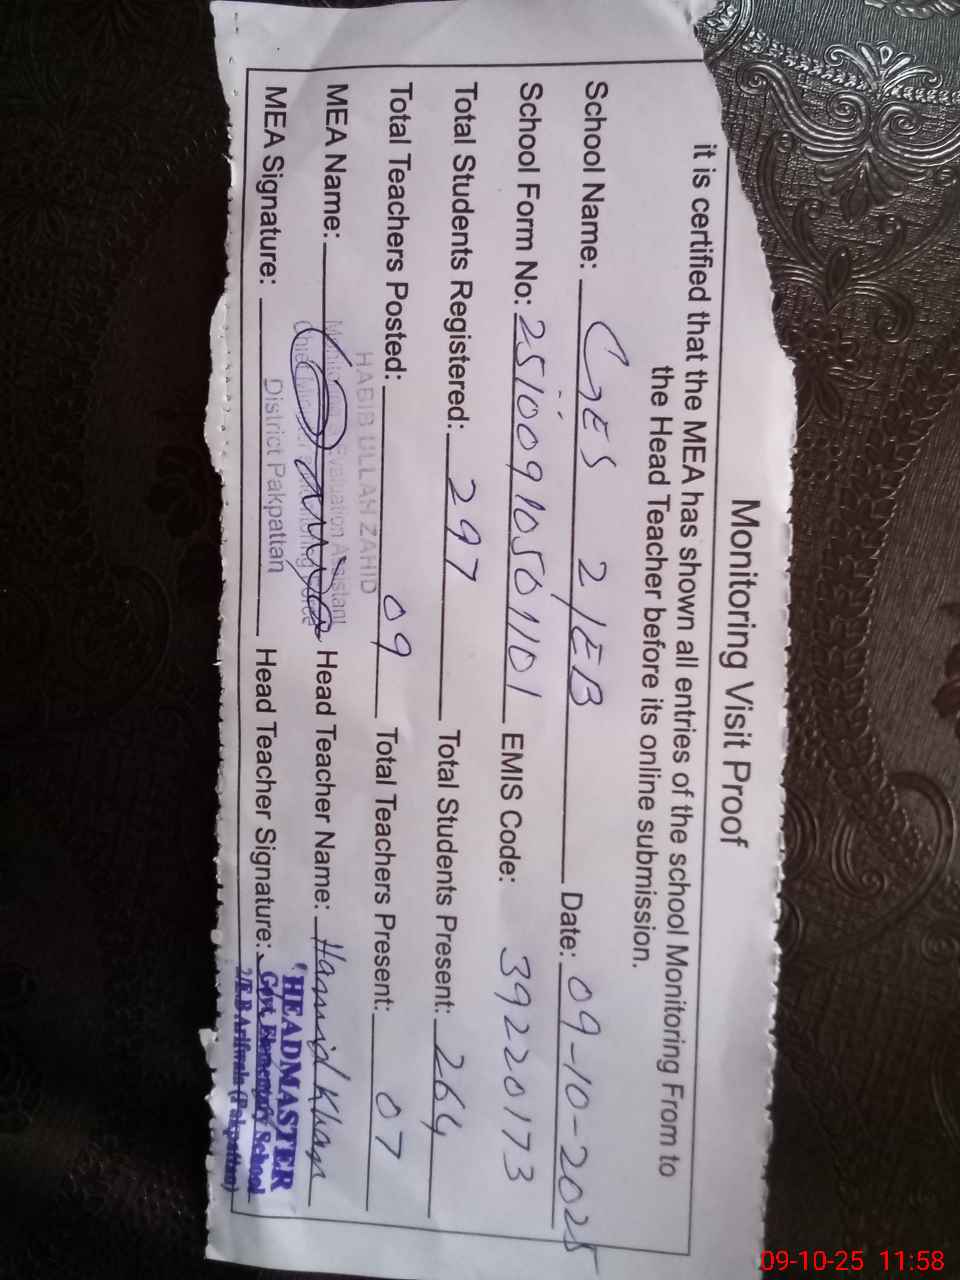 Monitoring Visit Proof
it is certified that the MEA has shown all entries of the school Monitoring From to
the Head Teacher before its online submission.
School Name: GES 2/EB Date: 09-10-2025
School Form No: 2510091050701101 EMIS Code: 39220173
Total Students Registered: 297 Total Students Present: 264
Total Teachers Posted: 09 Total Teachers Present: 07
HABIB ULLAH ZAHID
MEA Name: Head Teacher Name: Hamid Khan
Monitoring Evaluation Assistant
Chief Minister Monitoring Force
MEA Signature: District Pakpattan Head Teacher Signature:
HEADMASTER
Govt. Elementary School
2/E.B Arifwala (Pakpattan)
09-10-25 11:58